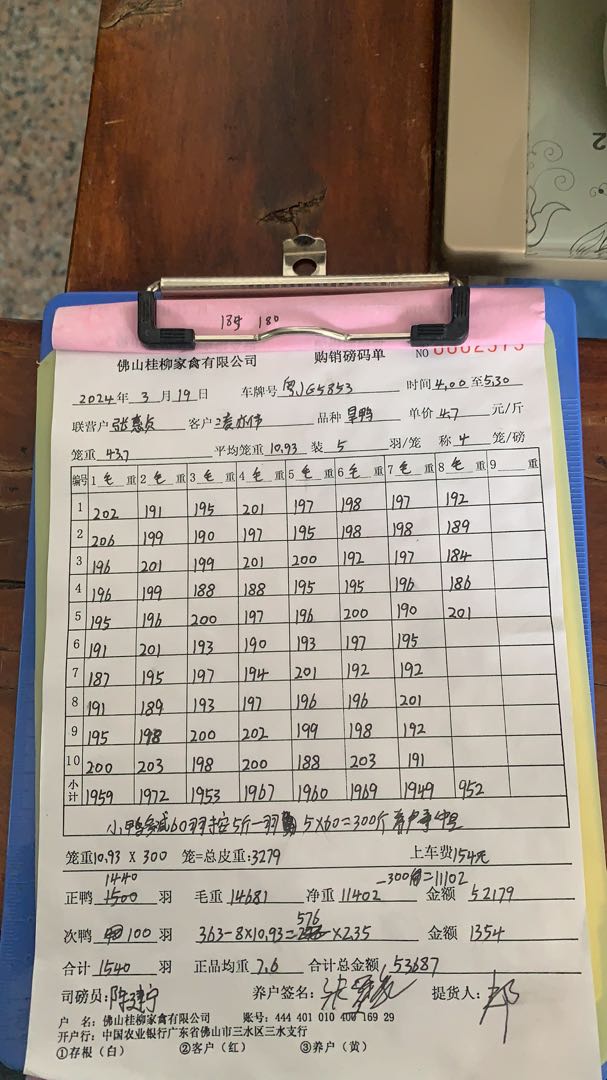 184 180
佛山桂柳家禽有限公司 购销磅码单 NO
2024年 3月19日 车牌号 粤JG5853 时间 4.00至5.30
联营户 客户 品种 旱鸭 单价 4.7 元/斤
笼重 43.7 平均笼重 10.93 装 5 羽/笼 称 4 笼/磅
编号 1毛重 2毛重 3毛重 4毛重 5毛重 6毛重 7毛重 8毛重 9 重
1 202 191 195 201 197 198 197 192
2 206 199 190 197 195 198 198 189
3 196 201 199 201 200 192 197 184
4 196 199 188 188 195 195 196 186
5 195 196 200 197 196 200 190 201
6 191 201 193 190 193 197 195
7 187 195 197 194 201 192 192
8 191 189 193 197 196 196 201
9 195 198 200 202 199 198 192
10 200 203 198 200 188 203 191
小计 1959 1972 1953 1967 1960 1969 1949 952
小鸭 60羽按5斤一羽 5×60=300斤
笼重10.93×300 笼=总皮重:3279 上车费154元
1440 -300 =11102
正鸭 1500 羽 毛重 14681 净重 11402 金额 52179
576
次鸭 100 羽 363-8×10.93= ×2.35 金额 1354
合计 1540 羽 正品均重 7.6 合计总金额 53687
司磅员: 养户签名: 提货人:
户 名:佛山桂柳家禽有限公司 账号:444 401 010 400 169 29
开户行:中国农业银行广东省佛山市三水区三水支行
①存根(白) ②客户(红) ③养户(黄)